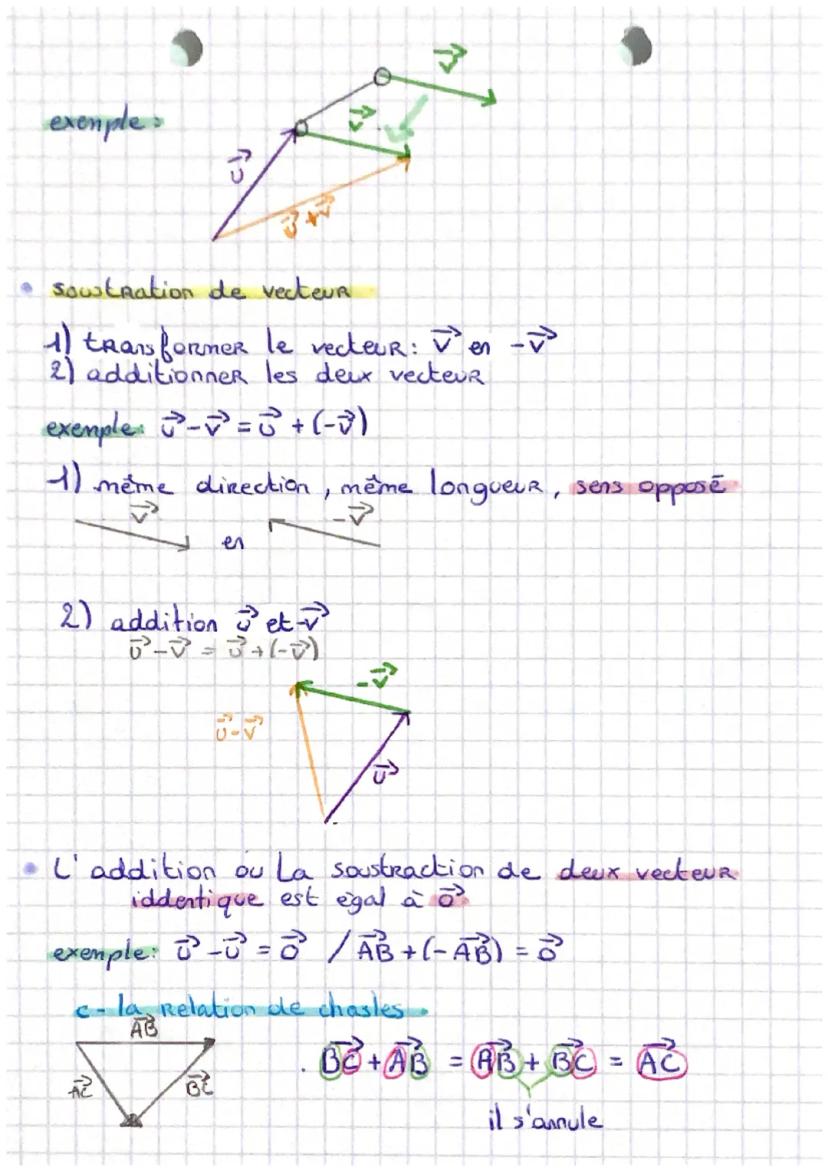 v⃗
exemple:
v⃗
u⃗
u⃗+v⃗
• soustration de vecteur
1) transformer le vecteur: v⃗ en -v⃗
2) additionner les deux vecteur
exemple: u⃗-v⃗ = u⃗ + (-v⃗)
1) même direction, même longueur, sens opposé
v⃗ en -v⃗
2) addition u⃗ et -v⃗
u⃗-v⃗ = u⃗+(-v⃗)
-v⃗
u⃗-v⃗
u⃗
• L'addition ou La soustraction de deux vecteur
iddentique est égal à 0⃗
exemple: u⃗-u⃗ = 0⃗ / AB⃗ + (-AB⃗) = 0⃗
c - la Relation de chasles.
AB⃗
. BC⃗ + AB⃗ = AB⃗ + BC⃗ = AC⃗
AC⃗ BC⃗
il s'annule